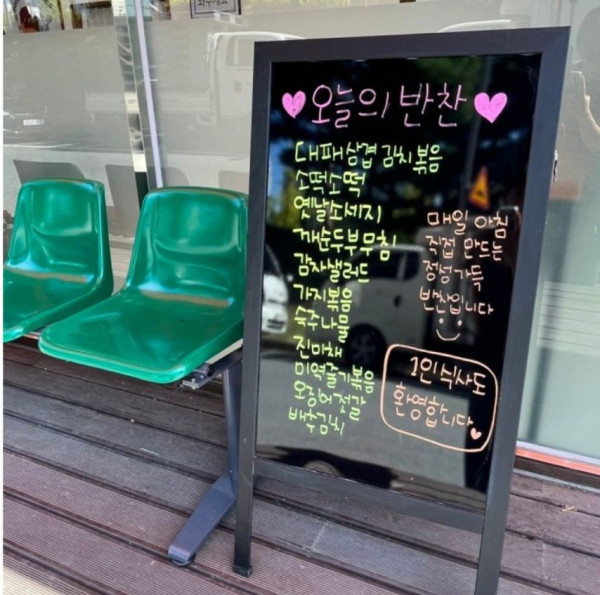 오늘의 반찬
대패삼겹김치볶음
소떡소떡
옛날소세지
깨순두부무침
감자샐러드
가지볶음
숙주나물
진미채
미역줄기볶음
오징어젓갈
배추김치
매일 아침
직접 만드는
정성가득
반찬입니다
1인 식사도
환영합니다